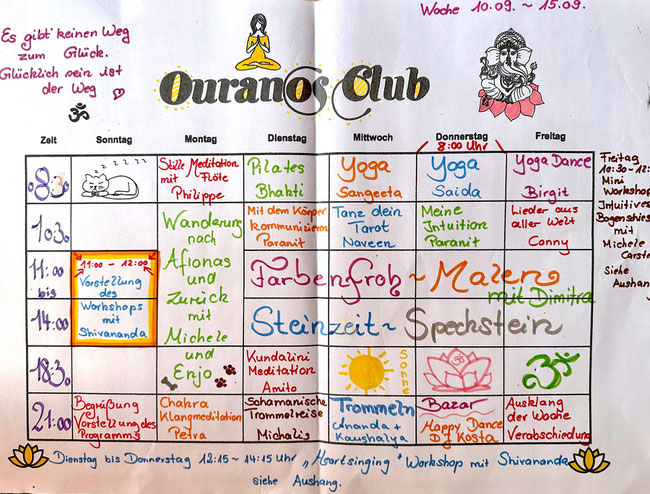 Woche 10.09. ~ 15.09.
Es gibt keinen Weg
zum Glück.
Glücklich sein ist
der Weg
ॐ
Ouranos Club
Zeit Sonntag Montag Dienstag Mittwoch Donnerstag Freitag
8:00 Uhr
8:30
Stille Meditation
mit Flöte
Philippe
Pilates
Bhakti
Yoga
Sangeeta
Yoga
Saida
Yoga Dance
Birgit
10:30
Wanderung
nach
Afionas
und
Zurück
mit
Michele
und
Enjo
Mit dem Körper
kommunizieren
Paranit
Tanz dein
Tarot
Naveen
Meine
Intuition
Paranit
Lieder aus
aller Welt
Conny
11:00
bis
14:00
11:00 - 12:00
Vorstellung
des
Workshops
mit
Shivananda
Farbenfroh ~ Malen
mit Dimitra
Steinzeit ~ Speckstein
18:30
Kundalini
Meditation
Amito
Sonne
ॐ
ॐ
21:00
Begrüßung
Vorstellung des
Programms
Chakra
Klangmeditation
Petra
Schamanische
Trommelreise
Michalis
Trommeln
Ananda +
Kaushalya
Bazar
Happy Dance
DJ Kosta
Ausklang
der Woche
Verabschiedung
Freitag
10:30-12:
Mini
Workshop
Intuitives
Bogenschies
mit
Michele
Carste
Siehe
Aushang
Dienstag bis Donnerstag 12:15 ~ 14:15 Uhr „Heartsinging" Workshop mit Shivananda
siehe Aushang.